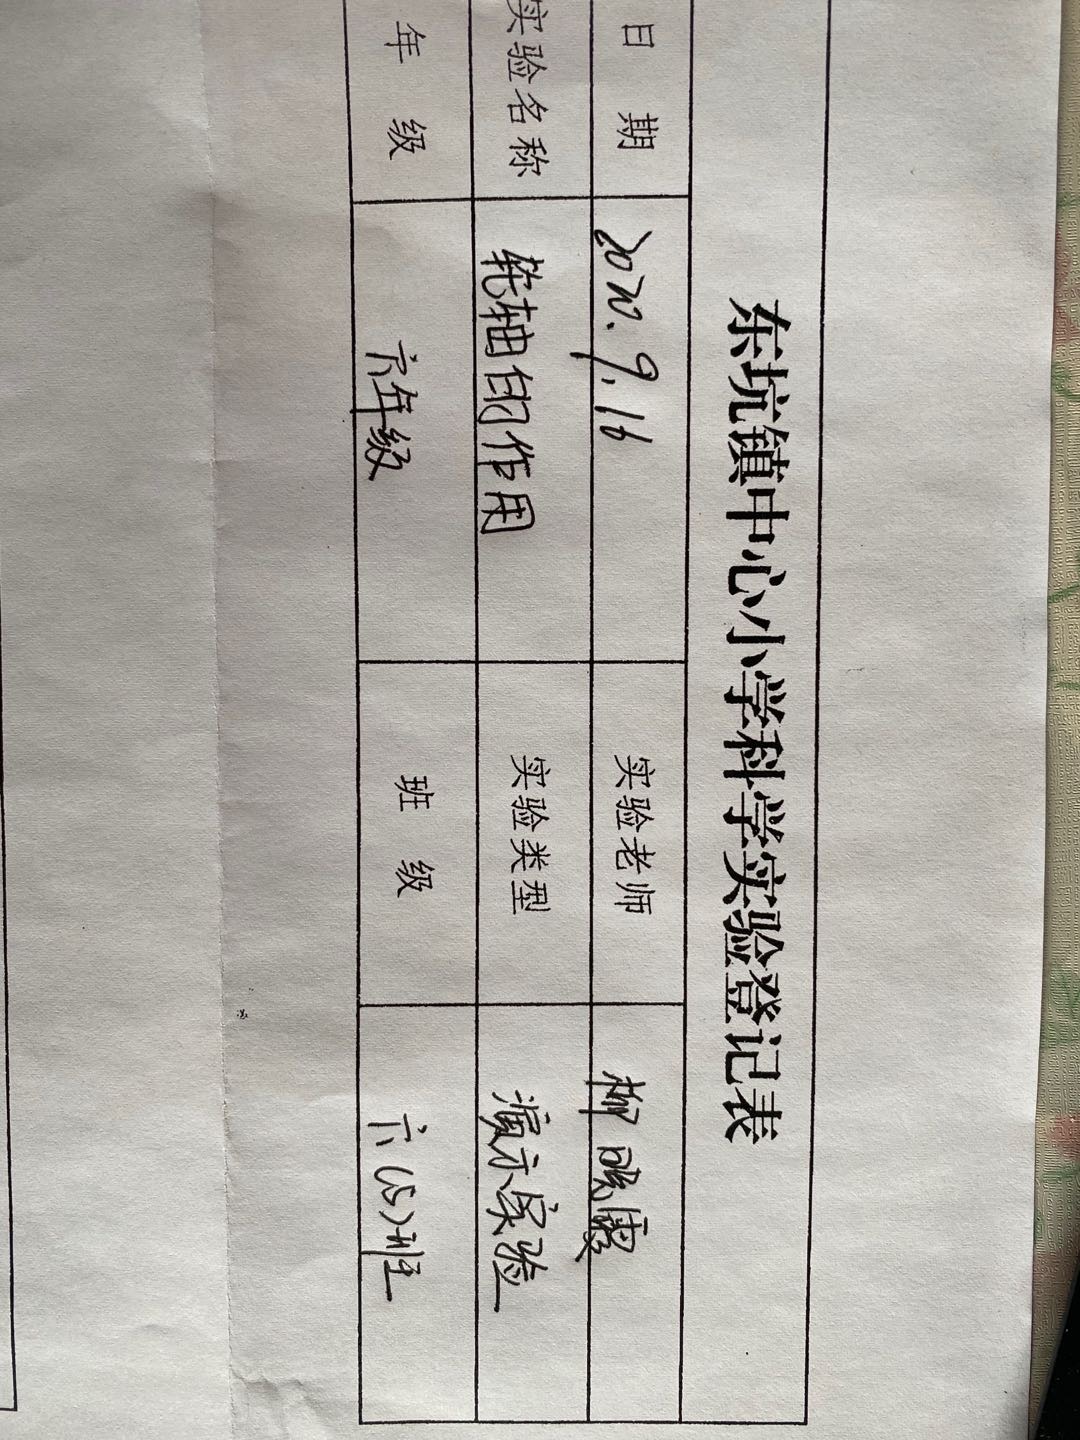 东坑镇中心小学科学实验登记表
日 期 2020.9.16 实验老师 柳晓霞
实验名称 轮轴的作用 实验类型 演示实验
年 级 六年级 班 级 六(5)班